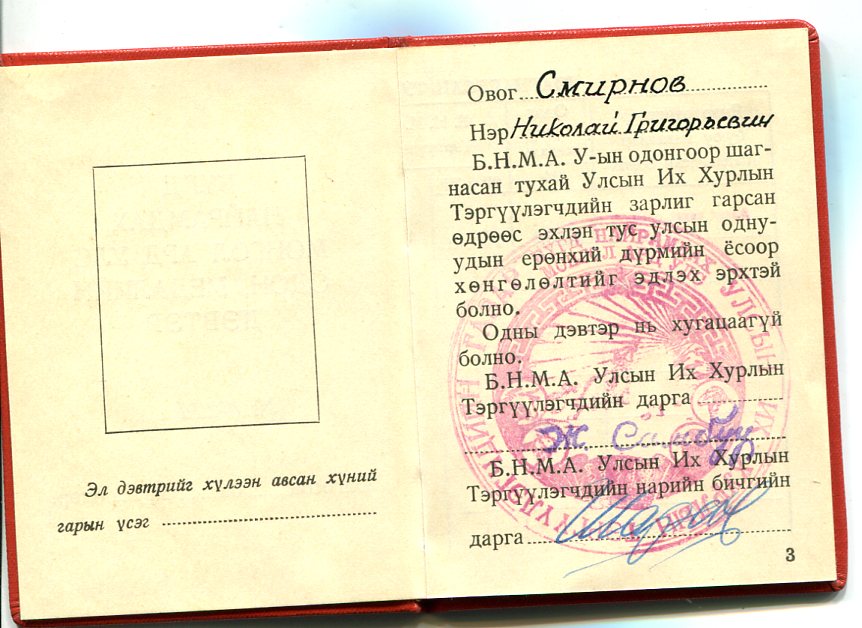 Эл дэвтрийг хүлээн авсан хүний
гарын үсэг
Овог Смирнов
Нэр Николай Григорьевич
Б.Н.М.А. У-ын одонгоор шаг-
насан тухай Улсын Их Хурлын
Тэргүүлэгчдийн зарлиг гарсан
өдрөөс эхлэн тус улсын одну-
удын ерөнхий дүрмийн ёсоор
хөнгөлөлтийг эдлэх эрхтэй
болно.
Одны дэвтэр нь хугацаагүй
болно.
Б.Н.М.А. Улсын Их Хурлын
Тэргүүлэгчдийн дарга
Ж. Самбуу
Б.Н.М.А. Улсын Их Хурлын
Тэргүүлэгчдийн нарийн бичгийн
дарга
3